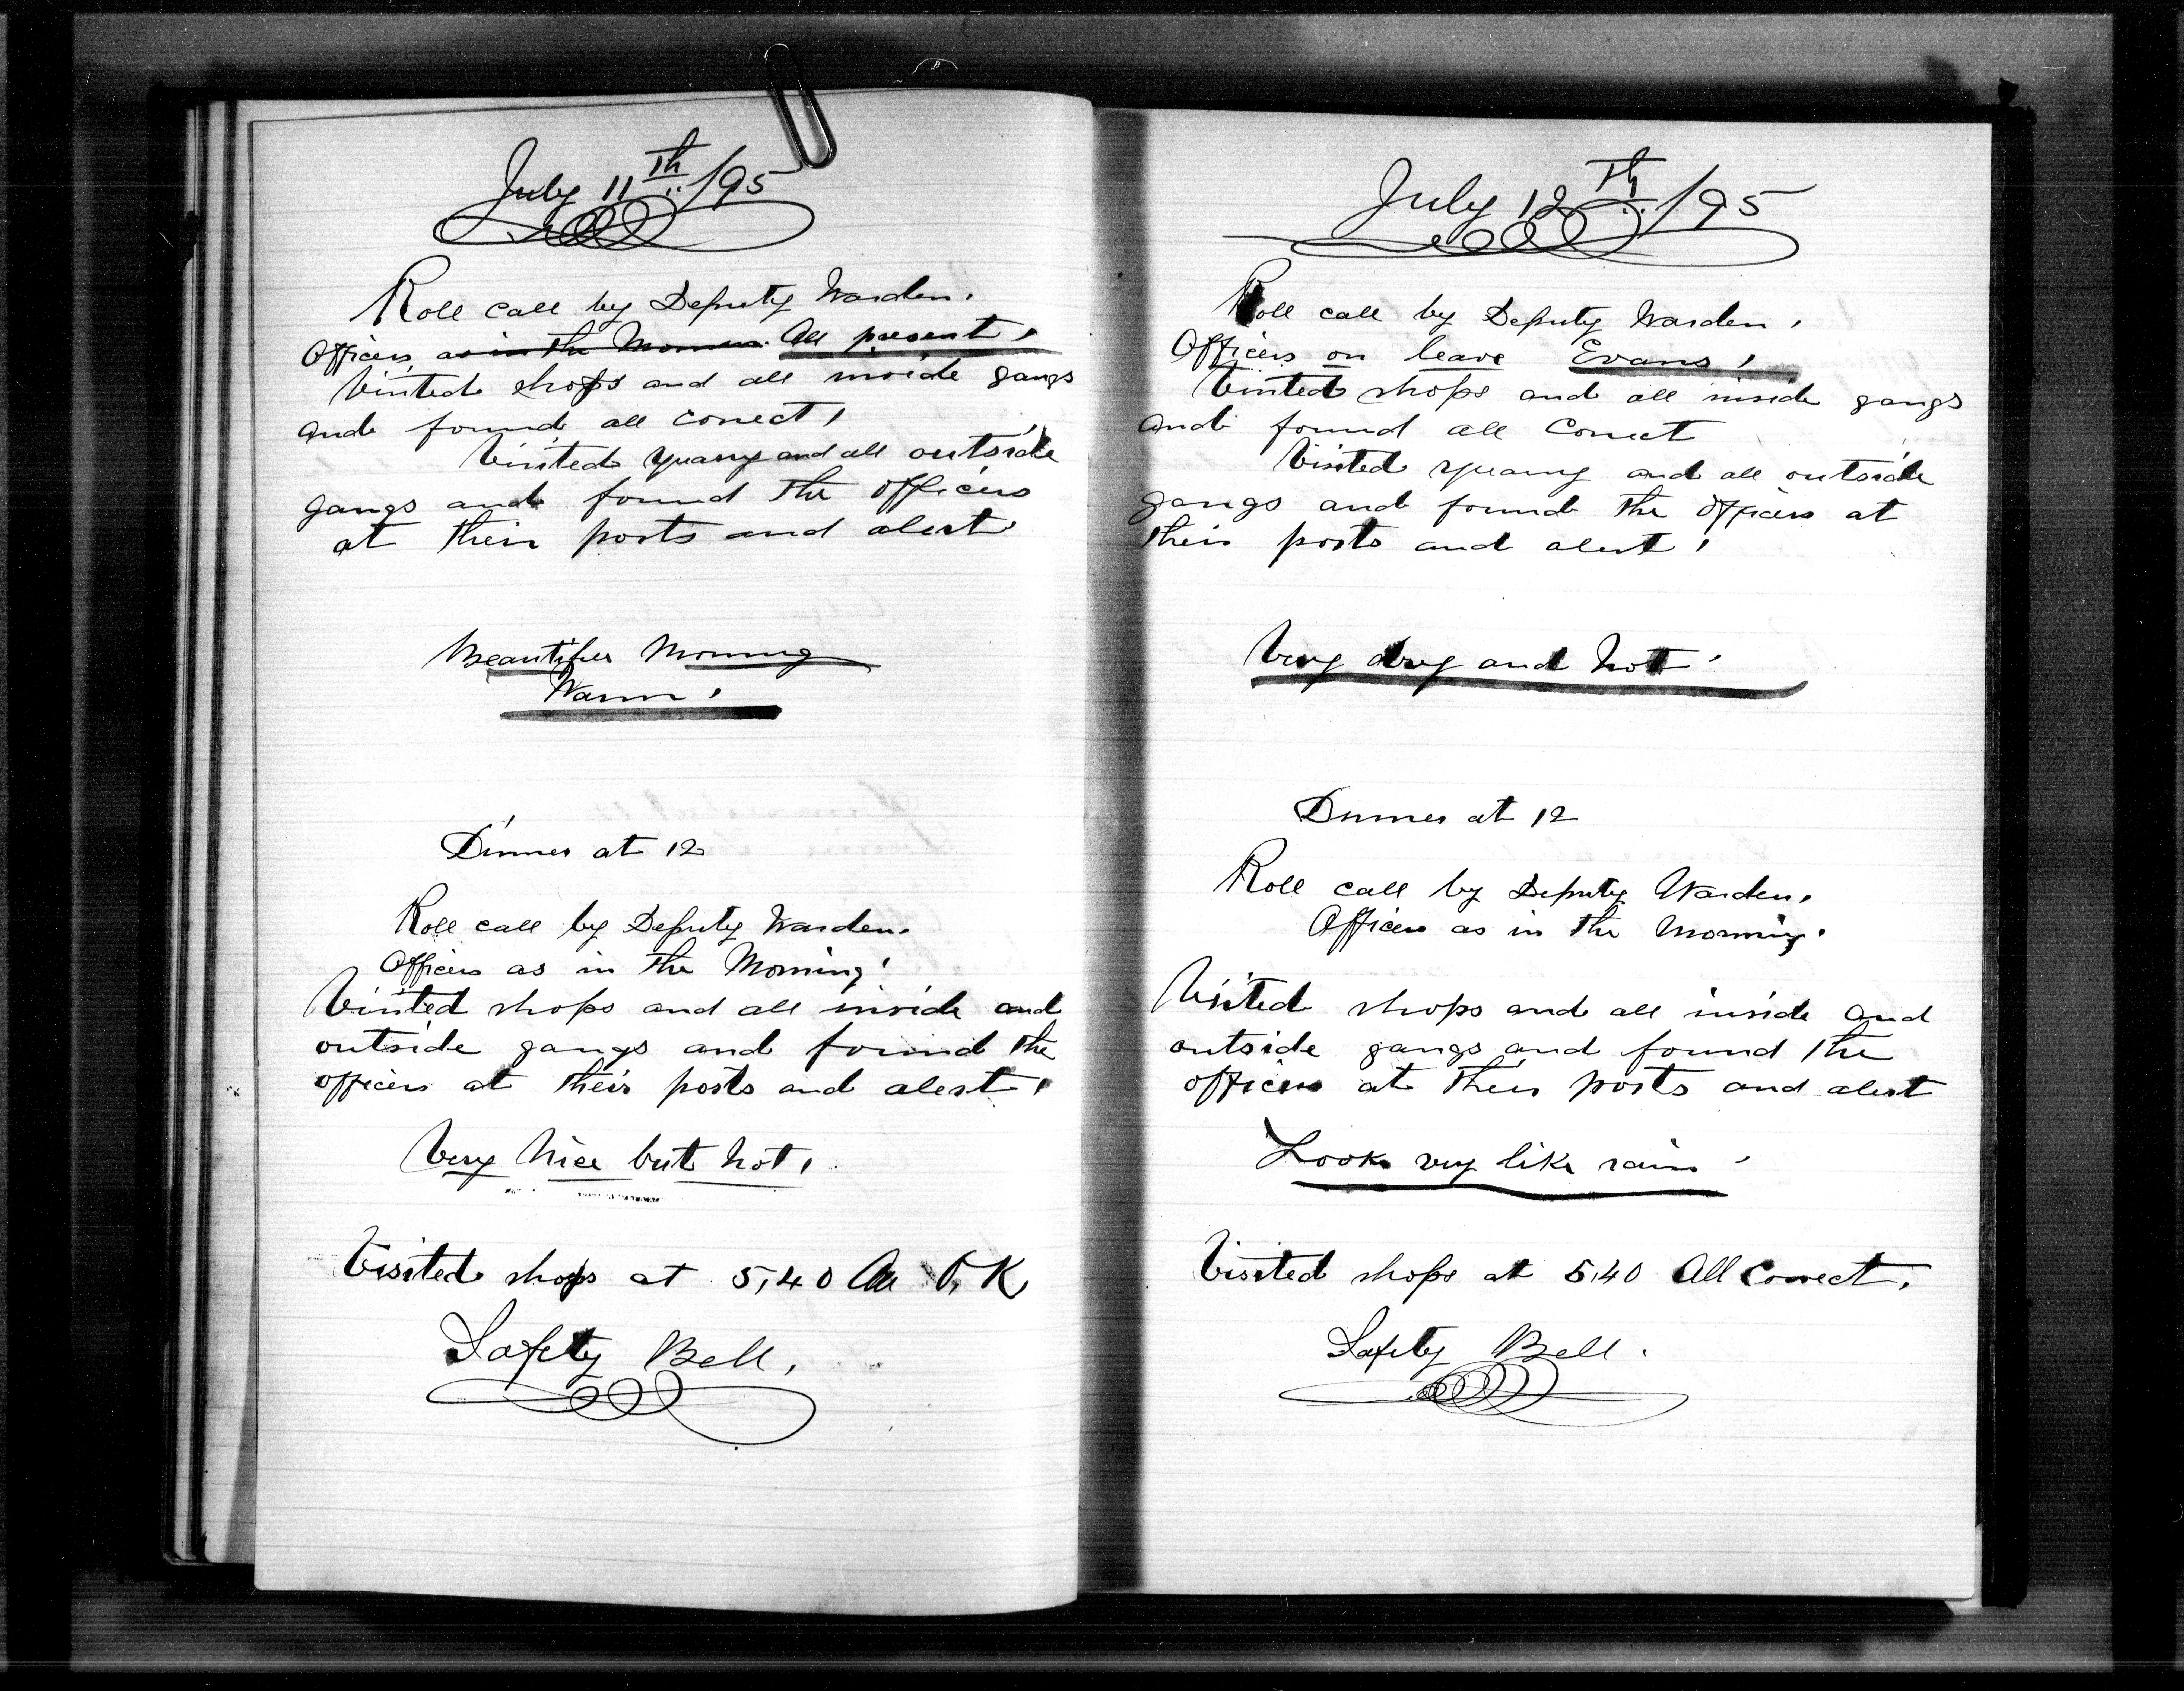 July 11th /95
Roll call by Deputy Warden.
Officers as in the Morning. All present,
Visited shops and all inside gangs
and found all correct,
Visited quarry and all outside
gangs and found the officers
at their posts and alert
Beautiful Morning
Warm.
Dinner at 12
Roll call by Deputy Warden.
Officers as in the Morning.
Visited shops and all inside and
outside gangs and found the
officers at their posts and alert,
Very Nice but hot,
Visited shops at 5,40 All O, K
Safety Bell,
July 12th /95
Roll call by Deputy Warden,
Officers on leave Evans,
Visited shops and all inside gangs
and found all Correct
Visited quarry and all outside
gangs and found the officers at
their posts and alert,
Very dry and hot
Dinner at 12
Roll call by Deputy Warden.
Officers as in the Morning.
Visited shops and all inside and
outside gangs and found the
officers at their posts and alert
Looks very like rain
Visited shops at 5,40 All Correct,
Safety Bell.